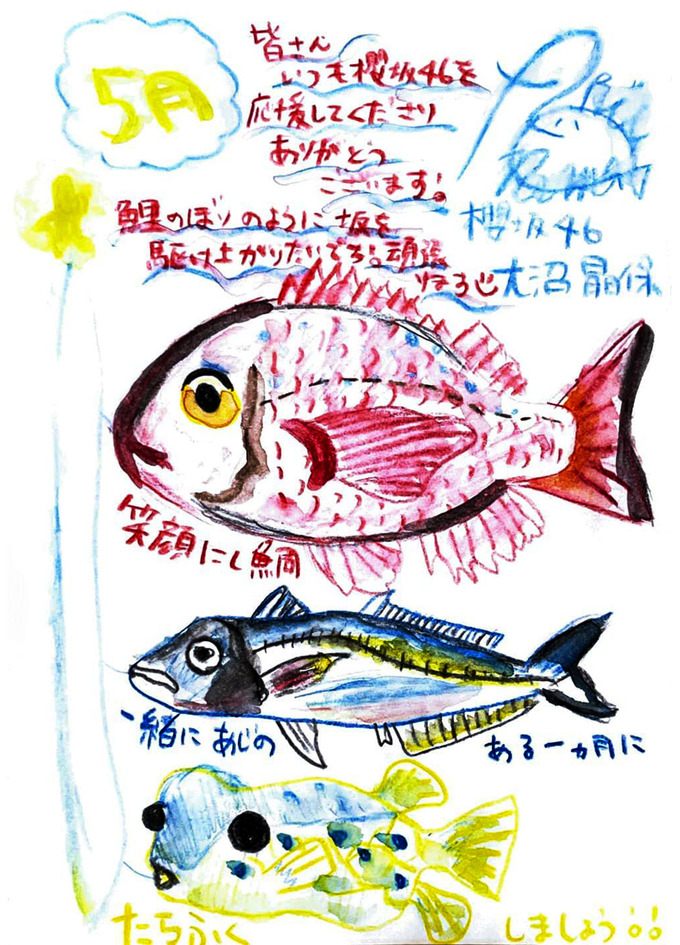 5月
皆さん
いつも櫻坂46を
応援してくださり
ありがとう
ございます!
鯉のぼりのように坂を
駆け上がりたいです!頑張
櫻坂46
大沼晶保
笑顔にし鯛
一緒に あじの
ある一ヵ月に
たらふく
しましょう!!